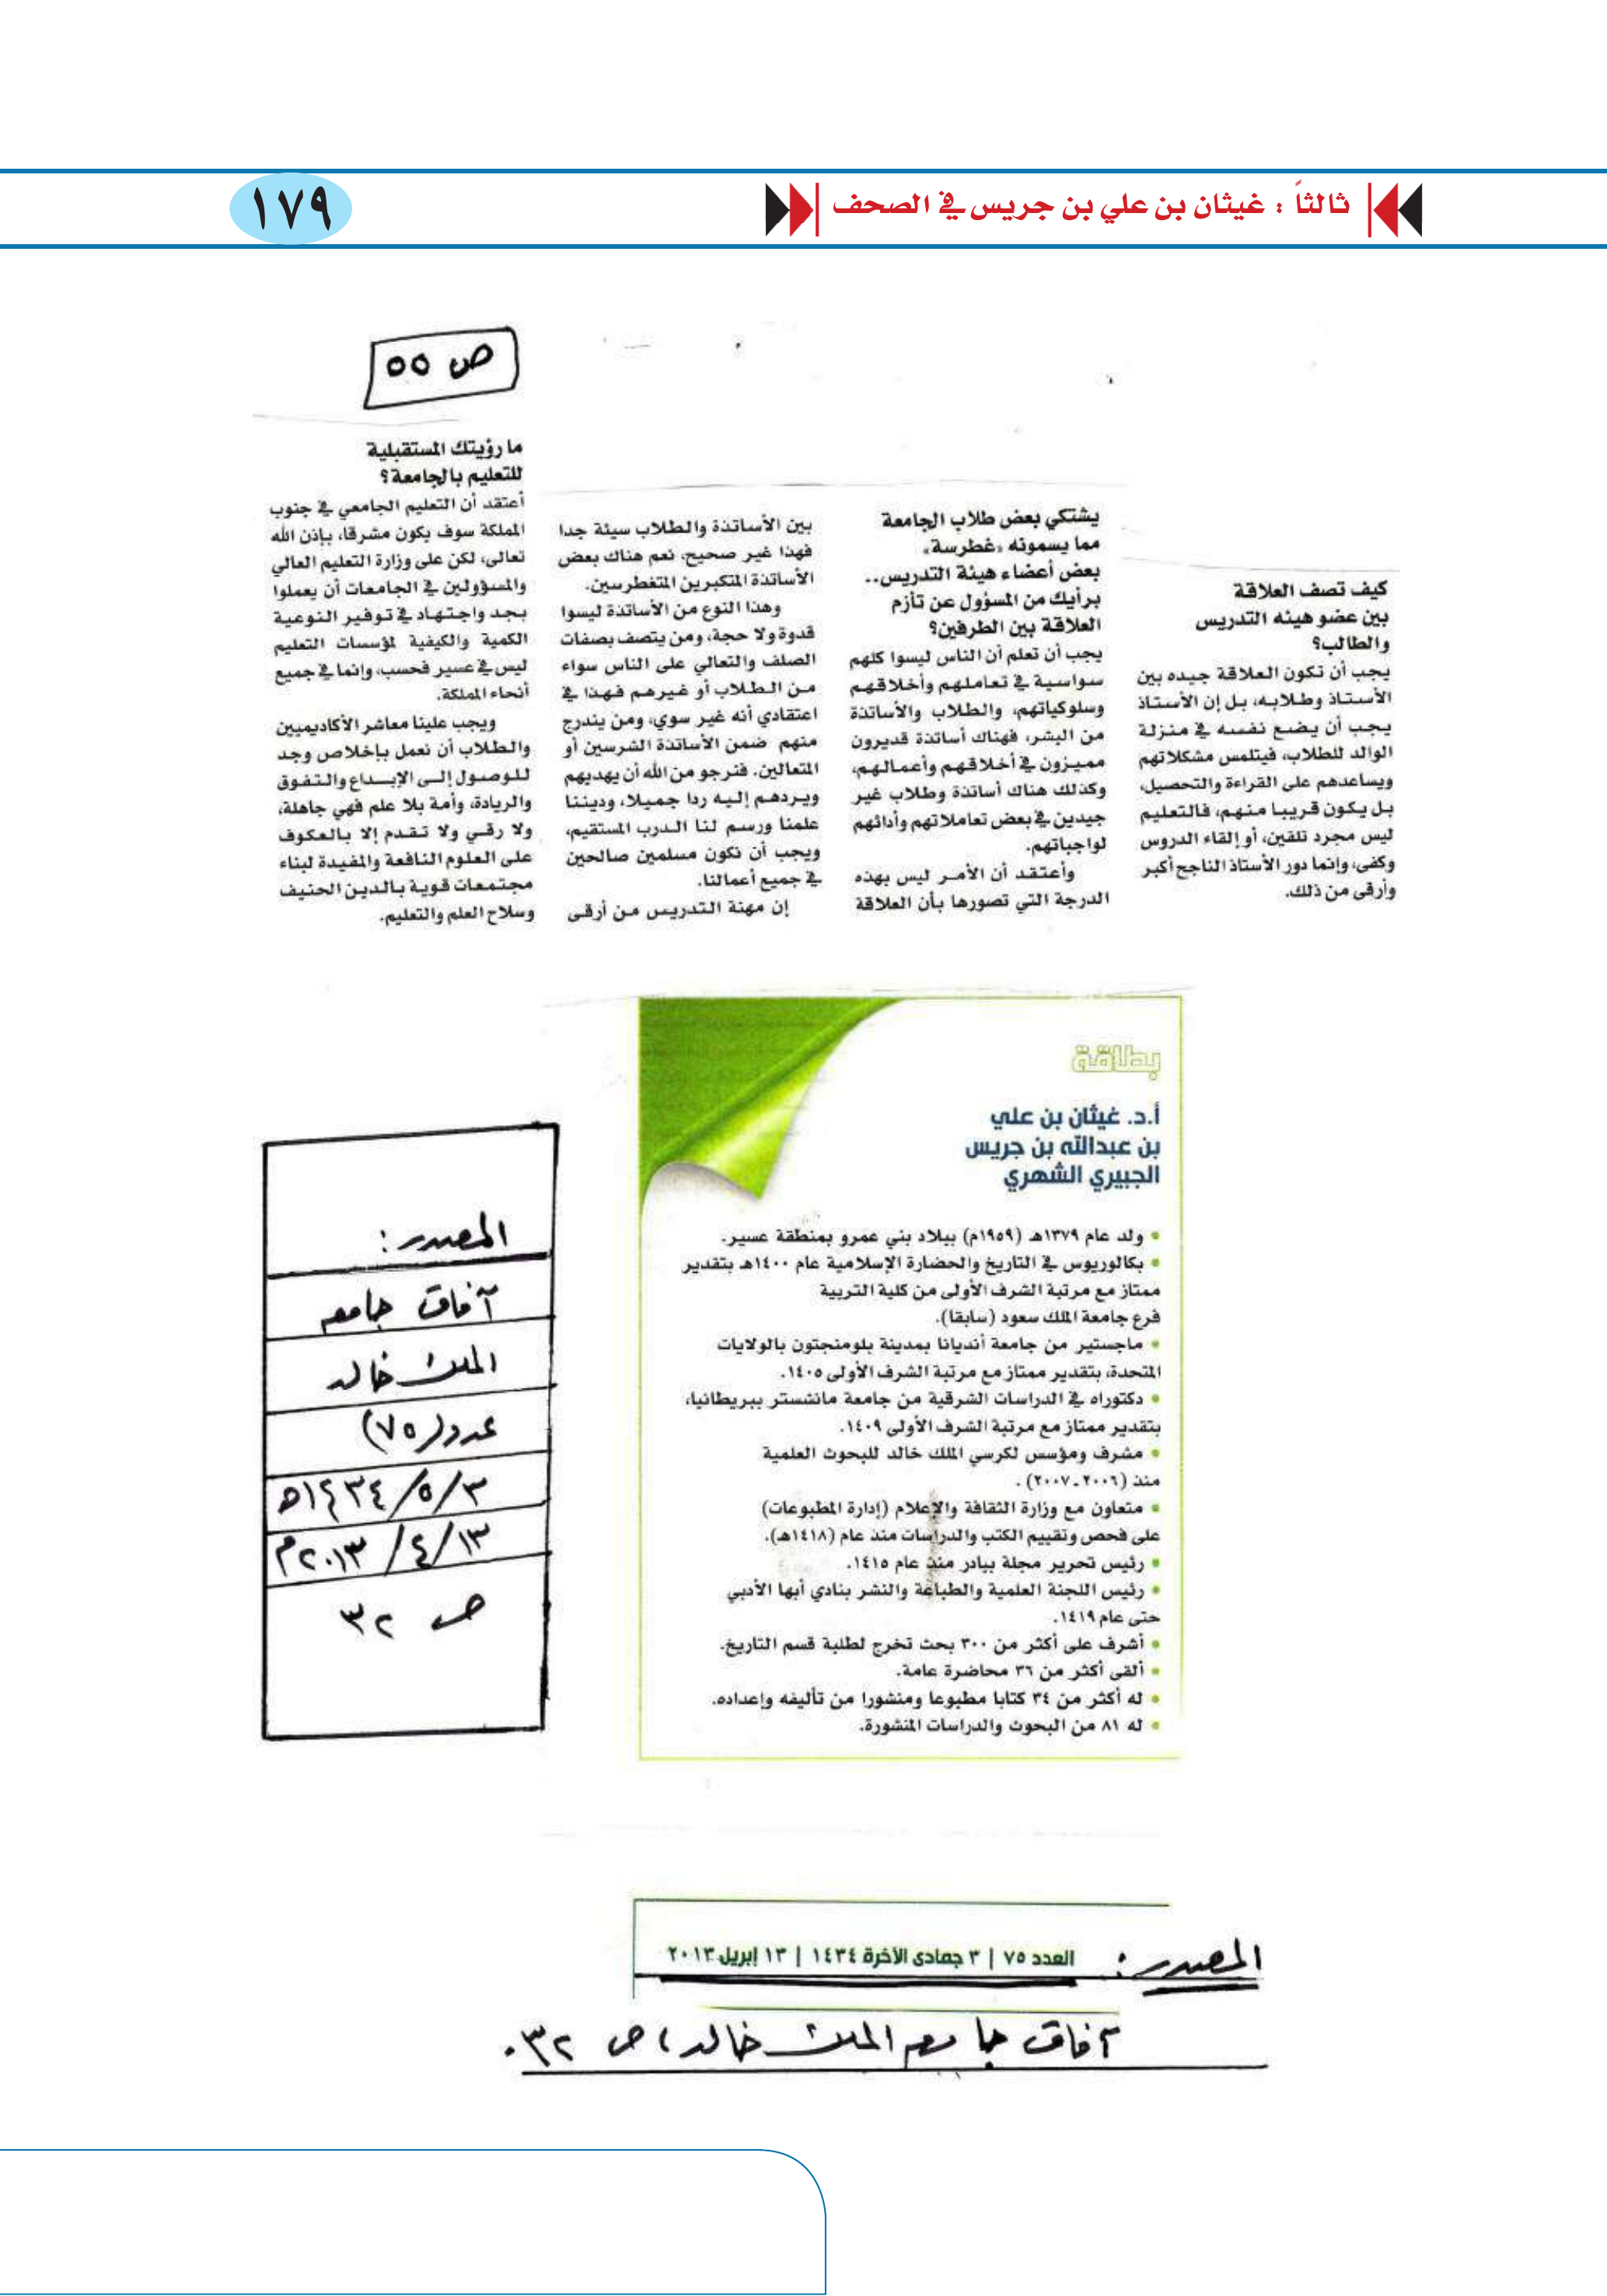 ثالثاً : غيثان بن علي بن جريس في الصحف
١٧٩
ص ٥٥
كيف تصف العلاقة
بين عضو هيئه التدريس
والطالب؟
يجب أن تكون العلاقة جيده بين
الأستاذ وطلابه، بل إن الأستاذ
يجب أن يضع نفسه في منزلة
الوالد للطلاب، فيتلمس مشكلاتهم
ويساعدهم على القراءة والتحصيل،
بل يكون قريبا منهم، فالتعليم
ليس مجرد تلقين، أو إلقاء الدروس
وكفى، وإنما دور الأستاذ الناجح أكبر
وأرقى من ذلك.
يشتكي بعض طلاب الجامعة
مما يسمونه «غطرسة»
بعض أعضاء هيئة التدريس..
برأيك من المسؤول عن تأزم
العلاقة بين الطرفين؟
يجب أن تعلم أن الناس ليسوا كلهم
سواسية في تعاملهم وأخلاقهم
وسلوكياتهم، والطلاب والأساتذة
من البشر، فهناك أساتذة قديرون
مميزون في أخلاقهم وأعمالهم،
وكذلك هناك أساتذة وطلاب غير
جيدين في بعض تعاملاتهم وأدائهم
لواجباتهم.
وأعتقد أن الأمر ليس بهذه
الدرجة التي تصورها بأن العلاقة
بين الأساتذة والطلاب سيئة جدا
فهذا غير صحيح، نعم هناك بعض
الأساتذة المتكبرين المتغطرسين.
وهذا النوع من الأساتذة ليسوا
قدوة ولا حجة، ومن يتصف بصفات
الصلف والتعالي على الناس سواء
من الطلاب أو غيرهم فهذا في
اعتقادي أنه غير سوي، ومن يندرج
منهم ضمن الأساتذة الشرسين أو
المتعالين. فنرجو من الله أن يهديهم
ويردهم إليه ردا جميلا، وديننا
علمنا ورسم لنا الدرب المستقيم،
ويجب أن نكون مسلمين صالحين
في جميع أعمالنا.
إن مهنة التدريس من أرقى
ما رؤيتك المستقبلية
للتعليم بالجامعة؟
أعتقد أن التعليم الجامعي في جنوب
المملكة سوف يكون مشرقا، بإذن الله
تعالى، لكن على وزارة التعليم العالي
والمسؤولين في الجامعات أن يعملوا
بجد واجتهاد في توفير النوعية
الكمية والكيفية لمؤسسات التعليم
ليس في عسير فحسب، وإنما في جميع
أنحاء المملكة.
ويجب علينا معاشر الأكاديميين
والطلاب أن نعمل بإخلاص وجد
للوصول إلى الإبداع والتفوق
والريادة، وأمة بلا علم فهي جاهلة،
ولا رقي ولا تقدم إلا بالعكوف
على العلوم النافعة والمفيدة لبناء
مجتمعات قوية بالدين الحنيف
وسلاح العلم والتعليم.
بطاقة
أ.د. غيثان بن علي
بن عبدالله بن جريس
الجبيري الشهري
• ولد عام ١٣٧٩هـ (١٩٥٩م) ببلاد بني عمرو بمنطقة عسير.
• بكالوريوس في التاريخ والحضارة الإسلامية عام ١٤٠٠هـ بتقدير
ممتاز مع مرتبة الشرف الأولى من كلية التربية
فرع جامعة الملك سعود (سابقا).
• ماجستير من جامعة أنديانا بمدينة بلومنجتون بالولايات
المتحدة، بتقدير ممتاز مع مرتبة الشرف الأولى ١٤٠٥.
• دكتوراه في الدراسات الشرقية من جامعة مانشستر ببريطانيا،
بتقدير ممتاز مع مرتبة الشرف الأولى ١٤٠٩.
• مشرف ومؤسس لكرسي الملك خالد للبحوث العلمية
منذ (٢٠٠٦ـ٢٠٠٧) .
• متعاون مع وزارة الثقافة والإعلام (إدارة المطبوعات)
على فحص وتقييم الكتب والدراسات منذ عام (١٤١٨هـ).
• رئيس تحرير مجلة بيادر منذ عام ١٤١٥.
• رئيس اللجنة العلمية والطباعة والنشر بنادي أبها الأدبي
حتى عام ١٤١٩.
• أشرف على أكثر من ٣٠٠ بحث تخرج لطلبة قسم التاريخ.
• ألقى أكثر من ٣٦ محاضرة عامة.
• له أكثر من ٣٤ كتابا مطبوعا ومنشورا من تأليفه وإعداده.
• له ٨١ من البحوث والدراسات المنشورة.
المصدر:
آفاق جامعة
الملك خالد
عدد (٧٥)
٣/٥/١٤٣٤هـ
١٣/٤/٢٠١٣م
ص ٣٢
المصدر: العدد ٧٥ | ٣ جمادى الآخرة ١٤٣٤ | ١٣ إبريل ٢٠١٣
آفاق جامعة الملك خالد، ص ٣٢.